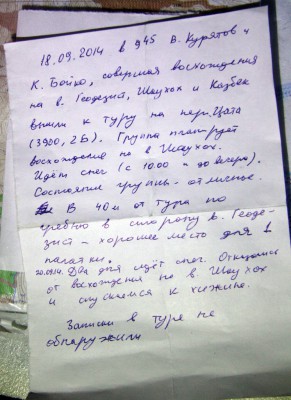 18.09.2014 в 945 В. Курятов и
К. Бойко, совершая восхождения
на в. Геодезий, Шаухох и Казбек
вышли к туру на пер. Цата
(3900, 2Б). Группа планирует
восхождение на в. Шаухох.
Идёт снег (с 10.00 и до вечера).
Состояние группы - отличное.
В 40 м от тура по
гребню в сторону в. Геоде-
зий - хорошее место для 1
палатки.
20.09.14. Два дня идёт снег. Отказались
от восхождения на в. Шаухох
и спускаемся к хижине.
Записки в туре не
обнаружили